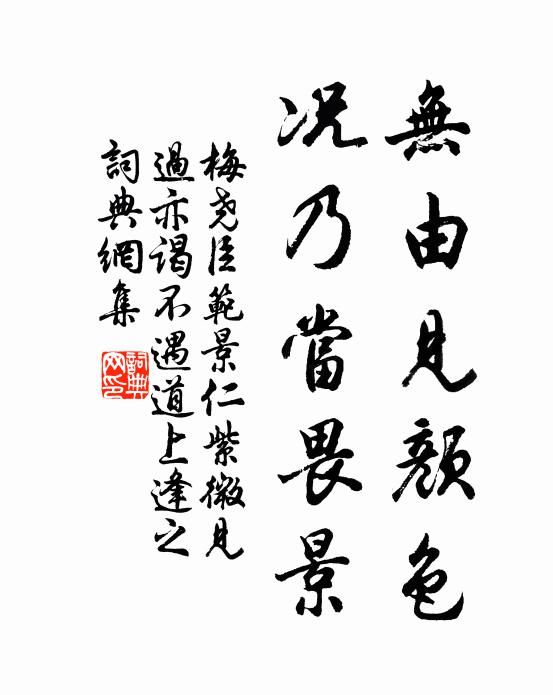 無由見顏色
況乃當畏景
梅堯臣範景仁紫微見
過亦謁不遇道上逢之
詞典網集
詞典
网印